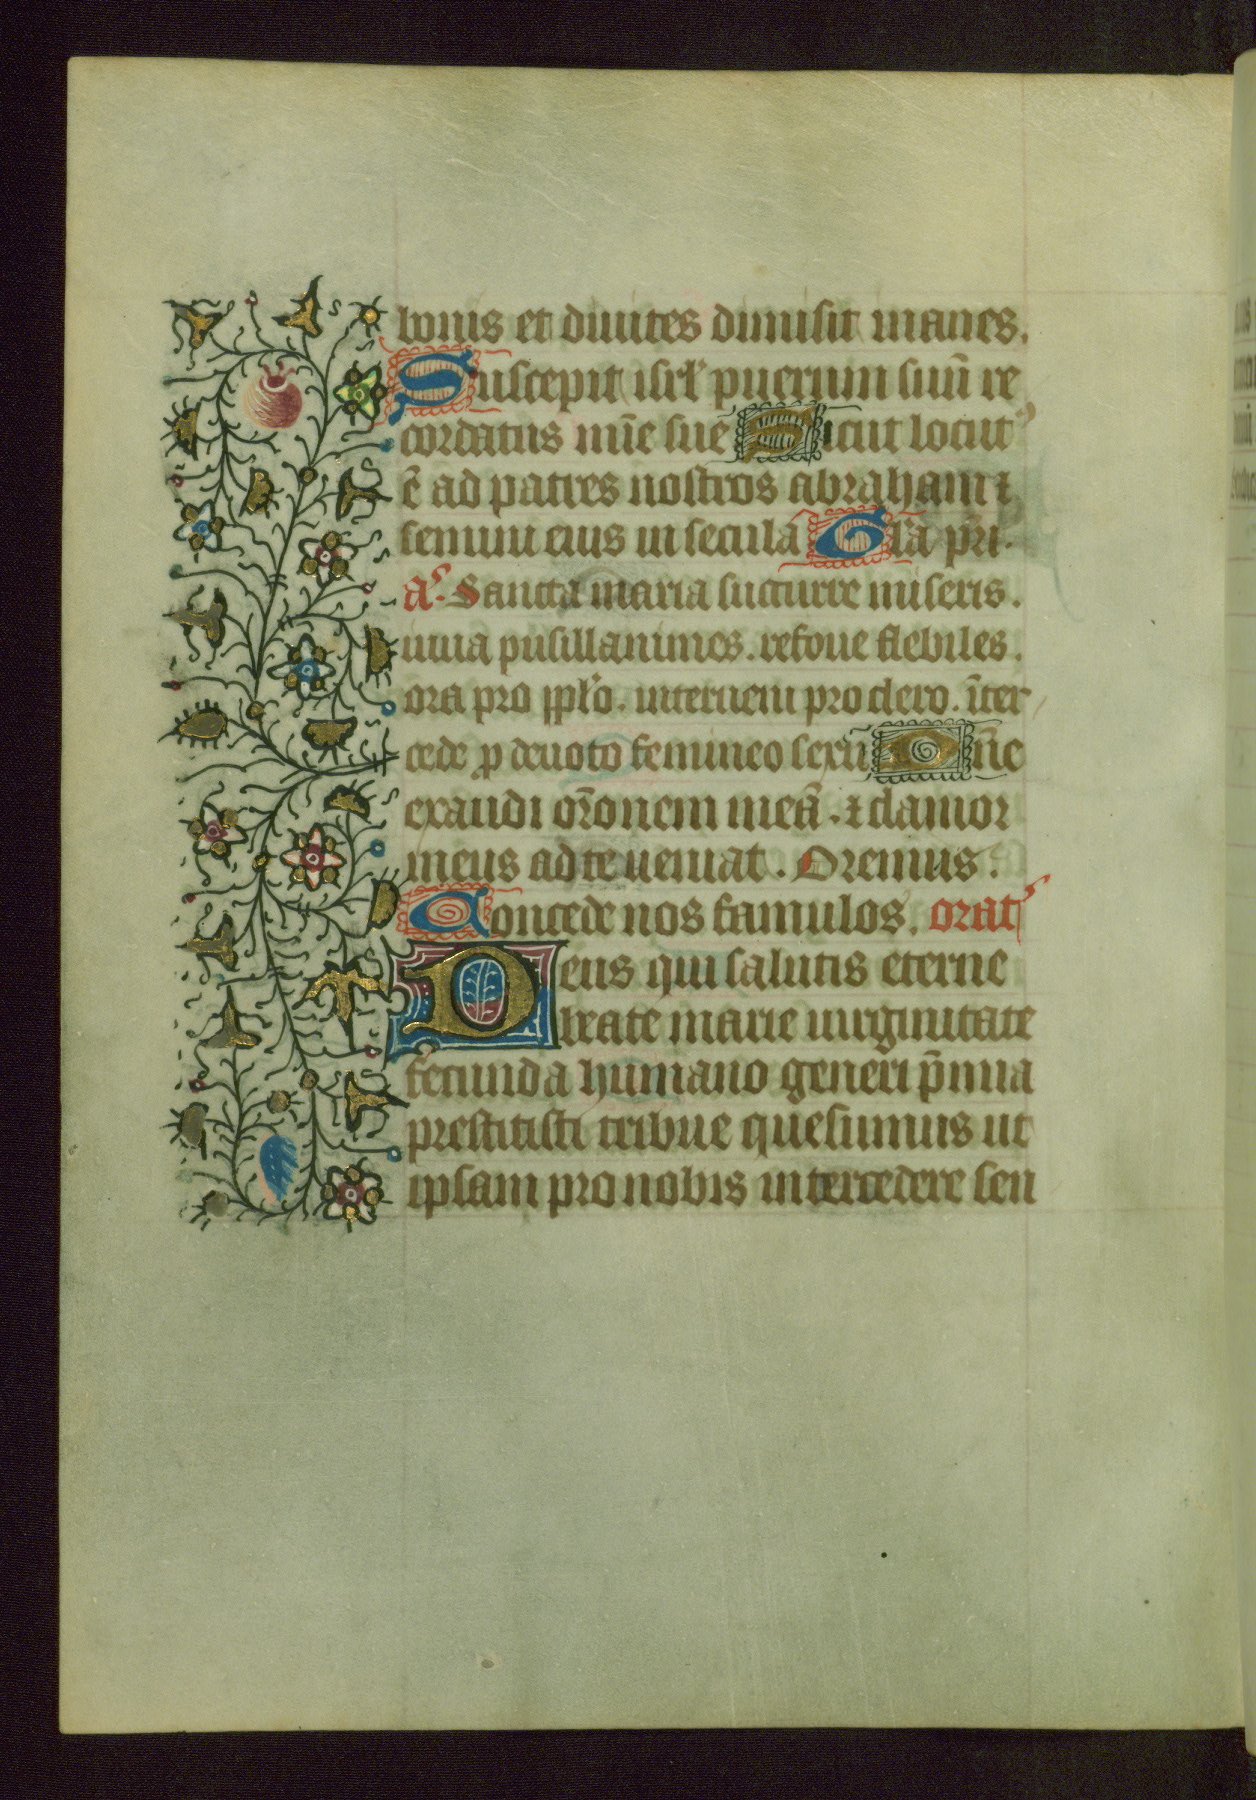 bonis et diuites dimisit inanes.
Suscepit isrł puerum suū re
cordatus mīe sue Sicut locut᾿
ē ad patres nostros abraham ⁊
semini eius in secula Gła pri.
a᾿. Sancta maria succurre miseris.
iuua pusillanimes. refoue flebiles.
ora pro pplo. interueni pro clero. īter
cede ꝑ deuoto femineo sexu Dn̄e
exaudi or̄onem meā. ⁊ clamor
meus ad te ueniat. Oremus.
Concede nos famulos. orat᾿
Deus qui salutis eterne
beate marie uirginitate
fecunda humano generi p̄mia
prestitisti tribue quesumus ut
ipsam pro nobis intercedere sen